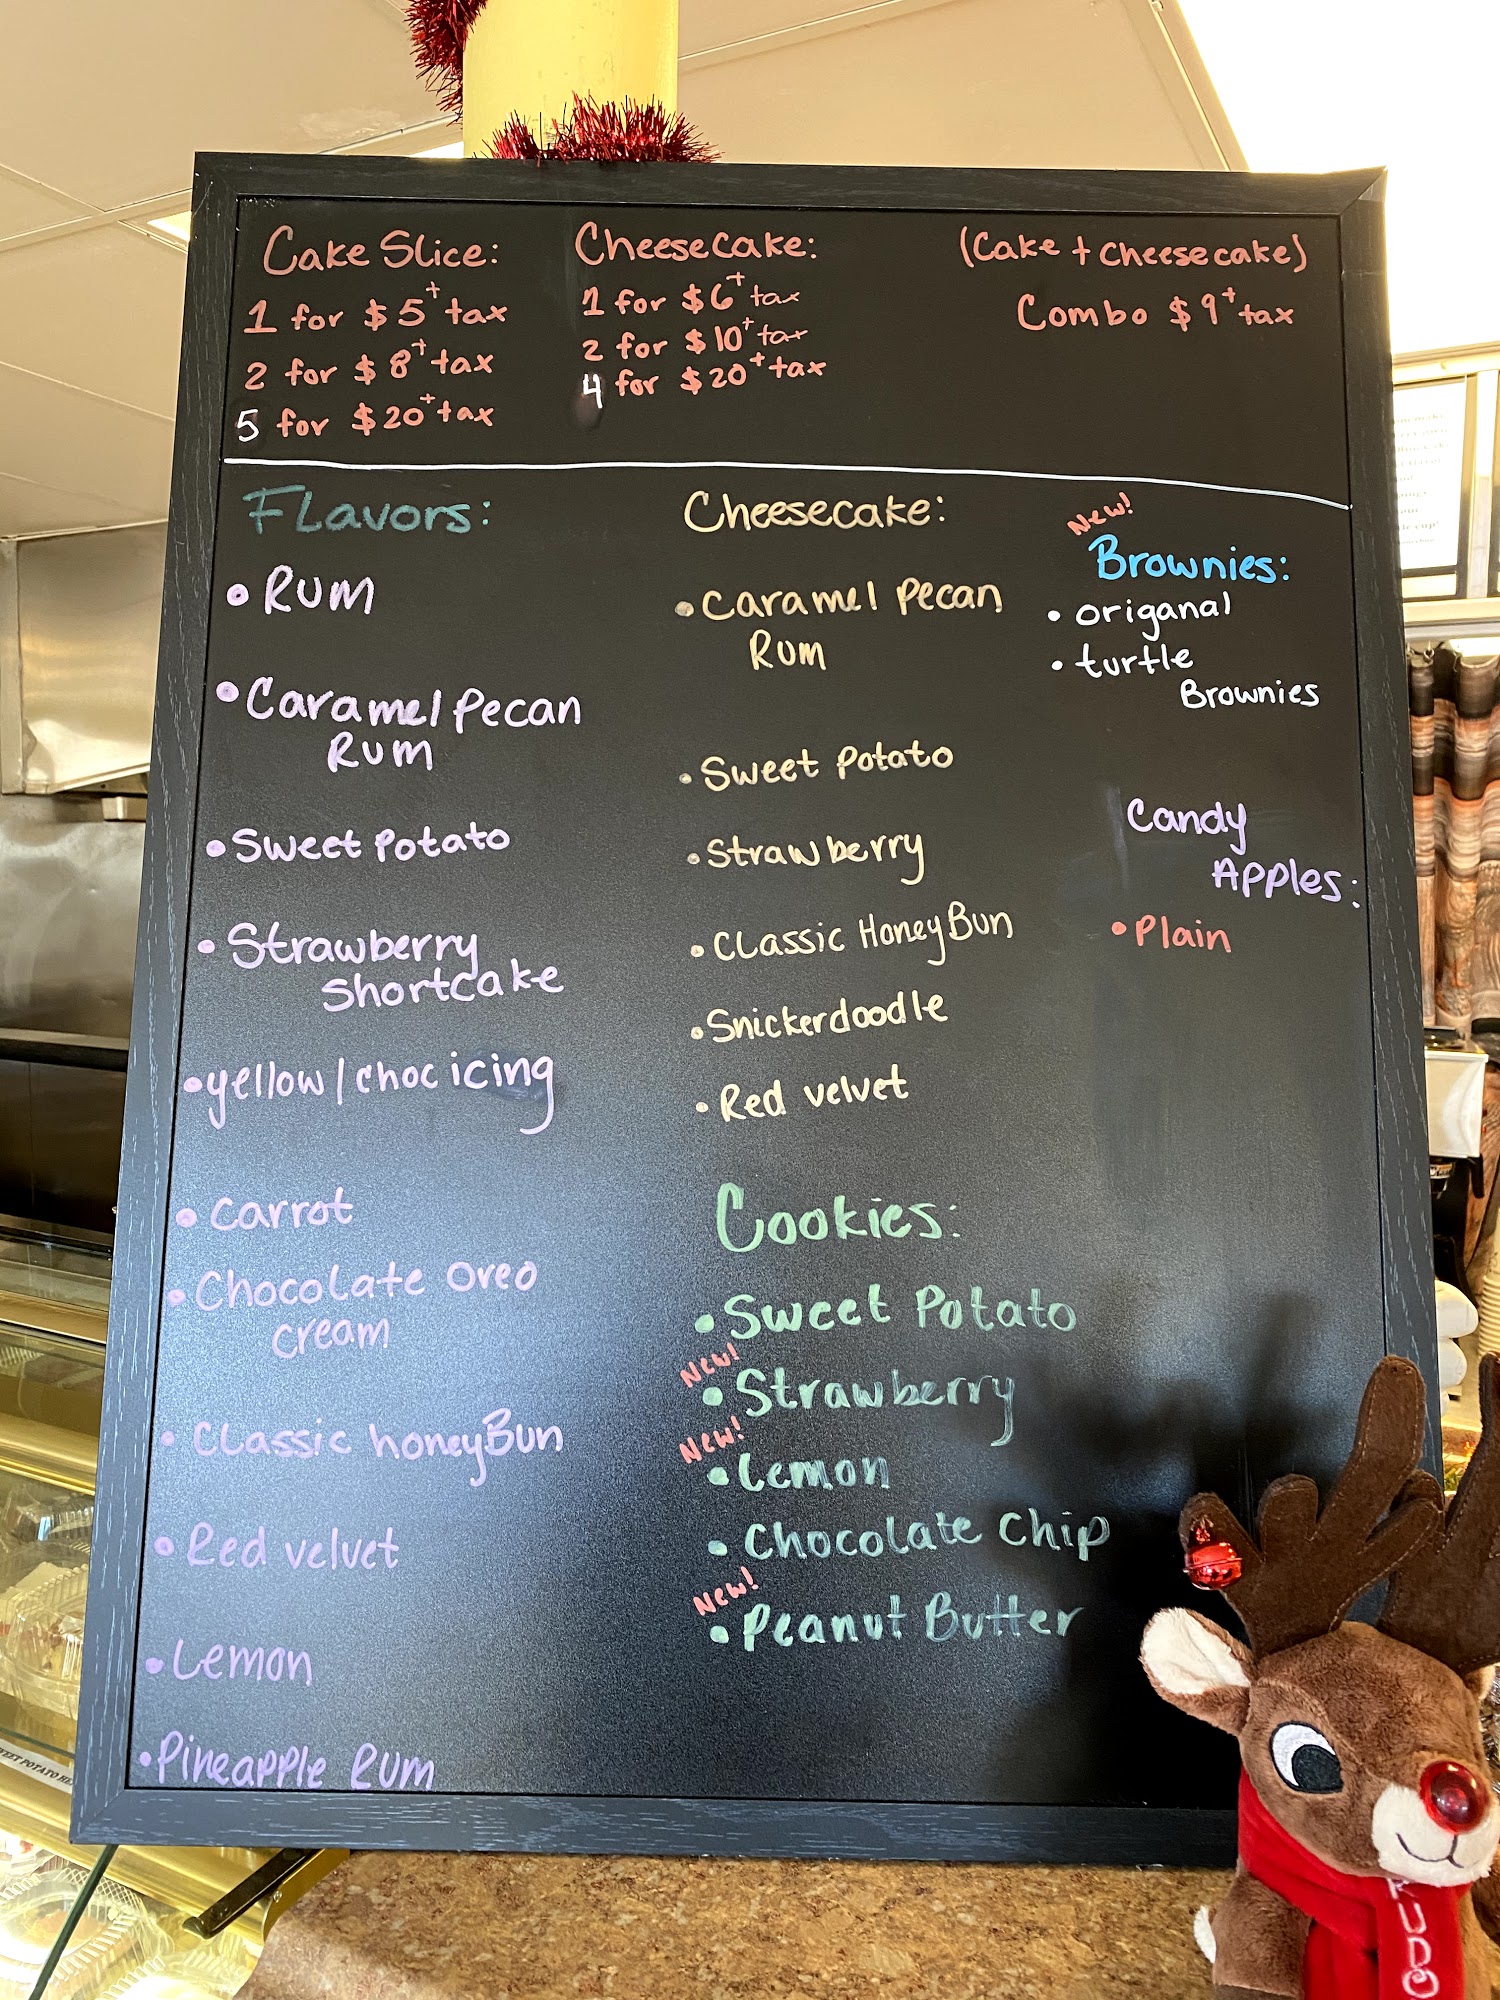 Cake Slice:
1 for $5 + tax
2 for $8 + tax
5 for $20 + tax
Cheesecake:
1 for $6 + tax
2 for $10 + tax
4 for $20 + tax
(Cake + Cheesecake)
Combo $9 + tax
Flavors:
• Rum
• Caramel Pecan
Rum
• Sweet Potato
• Strawberry
Shortcake
• yellow/choc icing
• Carrot
• Chocolate Oreo
Cream
• Classic honeyBun
• Red velvet
• Lemon
• Pineapple Rum
Cheesecake:
• Caramel Pecan
Rum
• Sweet Potato
• Strawberry
• Classic HoneyBun
• Snickerdoodle
• Red velvet
Cookies:
• Sweet Potato
New!
• Strawberry
New!
• Lemon
• Chocolate Chip
New!
• Peanut Butter
New!
Brownies:
• origanal
• turtle
Brownies
Candy
Apples:
• Plain
RUDO